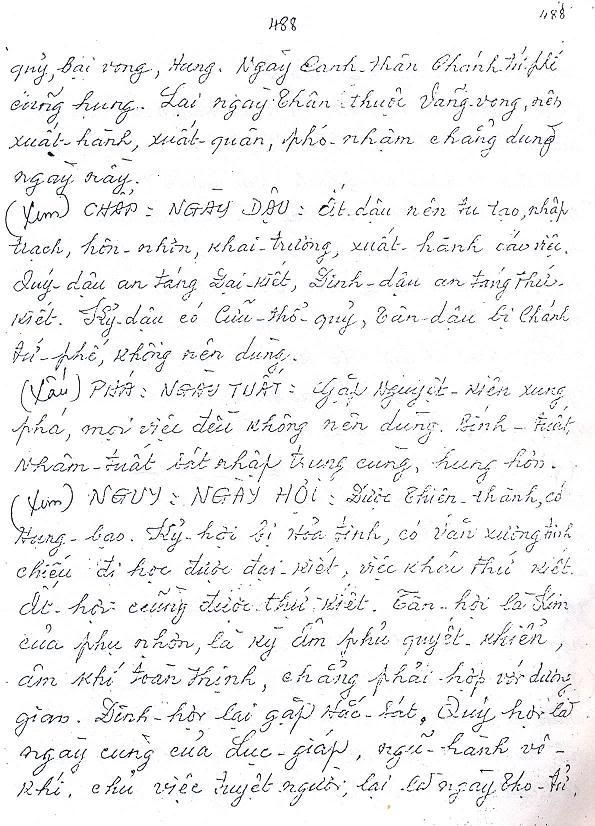 488
488
quỷ, bại vong, Hung. Ngày Canh-thân Chánh tứ-phế
cũng hung. Lại ngày Thân thuộc Vãng-vong, nên
xuất-hành, xuất-quân, phó-nhậm chẳng dùng
ngày nầy.
(Xem) CHẤP: NGÀY DẬU: Ất-dậu nên tu tạo, nhập
trạch, hôn-nhơn, khai-trương, xuất-hành các việc.
Quý-dậu an táng Đại-kiết, Đinh-dậu an táng thứ-
kiết. Kỷ-dậu có Cửu-thổ-quỷ, Tân-dậu bị Chánh
tứ-phế, không nên dùng.
(Xấu) PHÁ: NGÀY TUẤT: Gặp Nguyệt-kiên xung
phá, mọi việc đều không nên dùng. Bính-tuất,
Nhâm-tuất sát nhập trung cung, hung hơn.
(Xem) NGUY: NGÀY HỢI: Được Thiên-thành, có
Hung-bạo. Kỷ-hợi bị Hỏa tinh, có Văn xương tinh
chiếu đi học được đại-kiết, việc khác thứ kiết.
Ất-hợi cũng được thứ kiết. Tân-hợi là Kim
của phụ nhơn, là kỳ âm phủ quyết-khiển,
âm khí toàn thịnh, chẳng phải hợp với dương
gian. Đinh-hợi lại gặp Hắc-sát, Quý hợi là
ngày cùng của Lục-giáp, ngũ-hành vô-
khí, chủ việc tuyệt người, lại là ngày Thọ-tử,